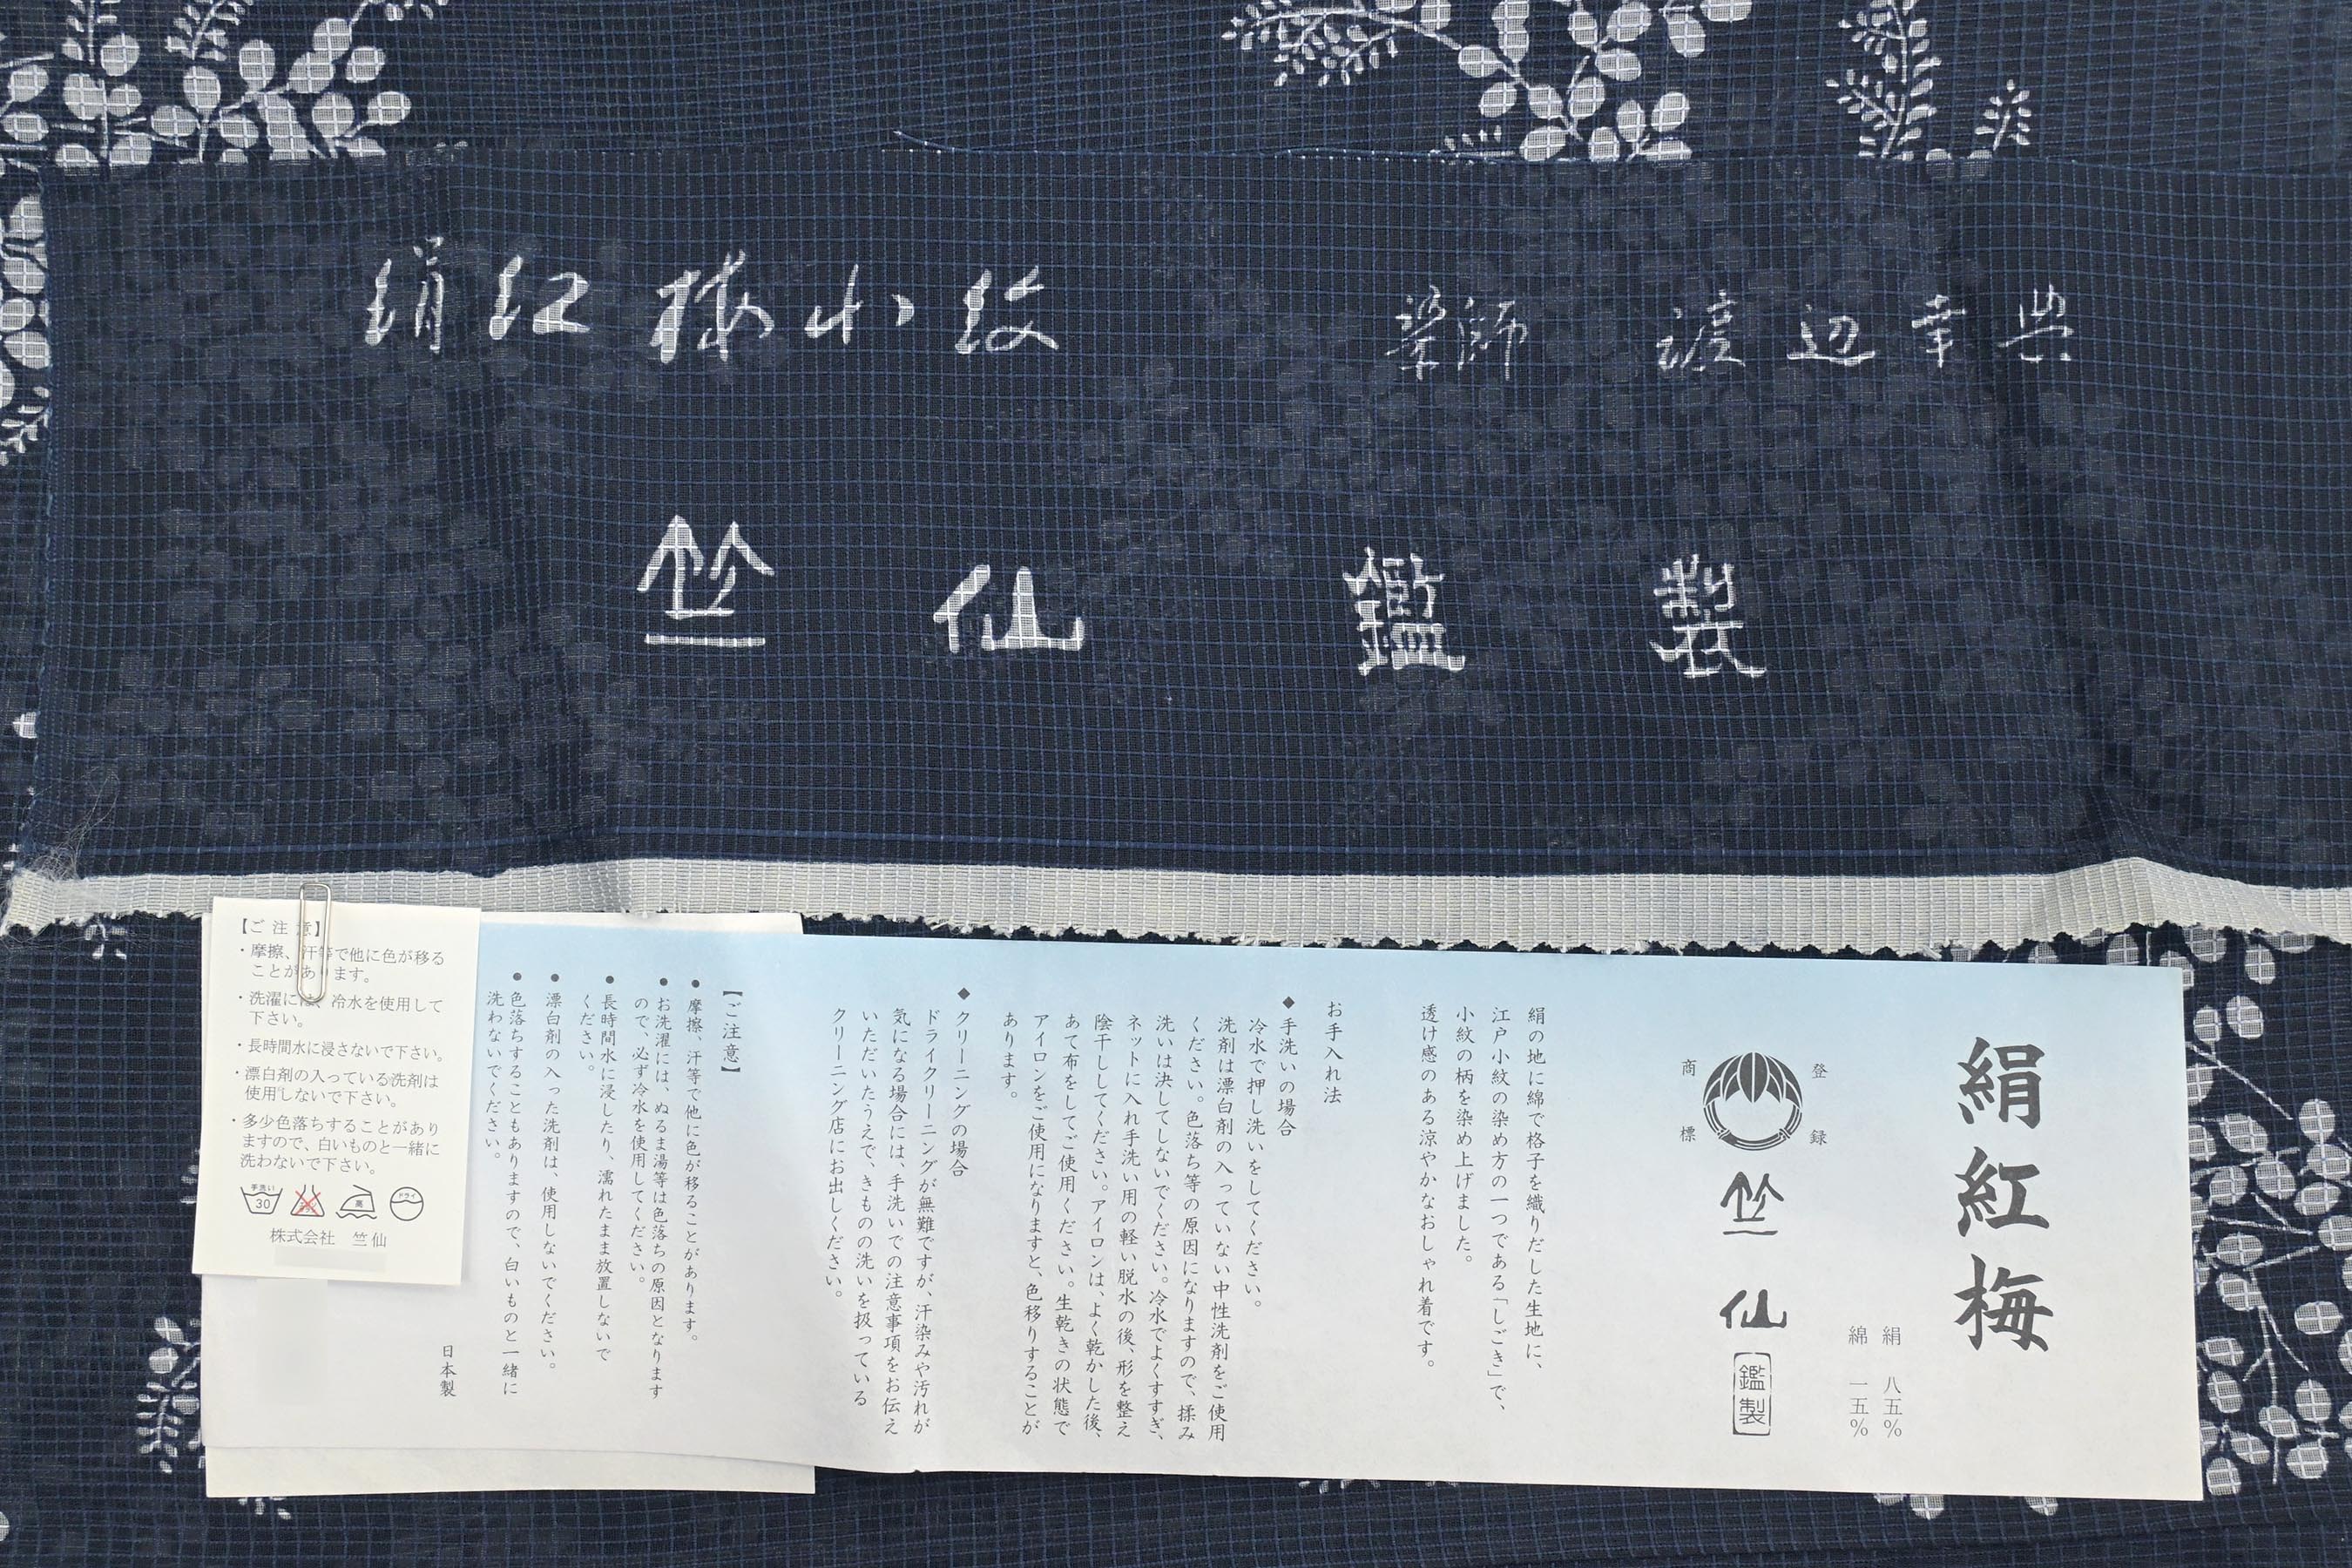 絹紅梅小紋
染師 渡辺幸典
竺仙鑑製
絹紅梅
絹 八五%
綿 一五%
登録
商標
竺仙
鑑製
絹の地に綿で格子を織りだした生地に、
江戸小紋の染め方の一つである「しごき」で、
小紋の柄を染め上げました。
透け感のある涼やかなおしゃれ着です。
お手入れ法
◆手洗いの場合
冷水で押し洗いをしてください。
洗剤は漂白剤の入っていない中性洗剤をご使用
ください。色落ち等の原因になりますので、揉み
洗いは決してしないでください。冷水でよくすすぎ、
ネットに入れ手洗い用の軽い脱水の後、形を整え
陰干ししてください。アイロンは、よく乾かした後、
あて布をしてご使用ください。生乾きの状態で
アイロンをご使用になりますと、色移りすることが
あります。
◆クリーニングの場合
ドライクリーニングが無難ですが、汗染みや汚れが
気になる場合には、手洗いでの注意事項をお伝え
いただいたうえで、きもの洗いを扱っている
クリーニング店にお出しください。
【ご注意】
●摩擦、汗等で他に色が移ることがあります。
●お洗濯には、ぬるま湯等は色落ちの原因となります
ので、必ず冷水を使用してください。
●長時間水に浸したり、濡れたまま放置しないで
ください。
●漂白剤の入った洗剤は、使用しないでください。
●色落ちすることもありますので、白いものと一緒に
洗わないでください。
日本製
【ご注意】
・摩擦、汗等で他に色が移る
ことがあります。
・洗濯には、冷水を使用して
下さい。
・長時間水に浸さないで下さい。
・漂白剤の入っている洗剤は
使用しないで下さい。
・多少色落ちすることがあり
ますので、白いものと一緒に
洗わないで下さい。
手洗い 30 高 ドライ
株式会社 竺仙